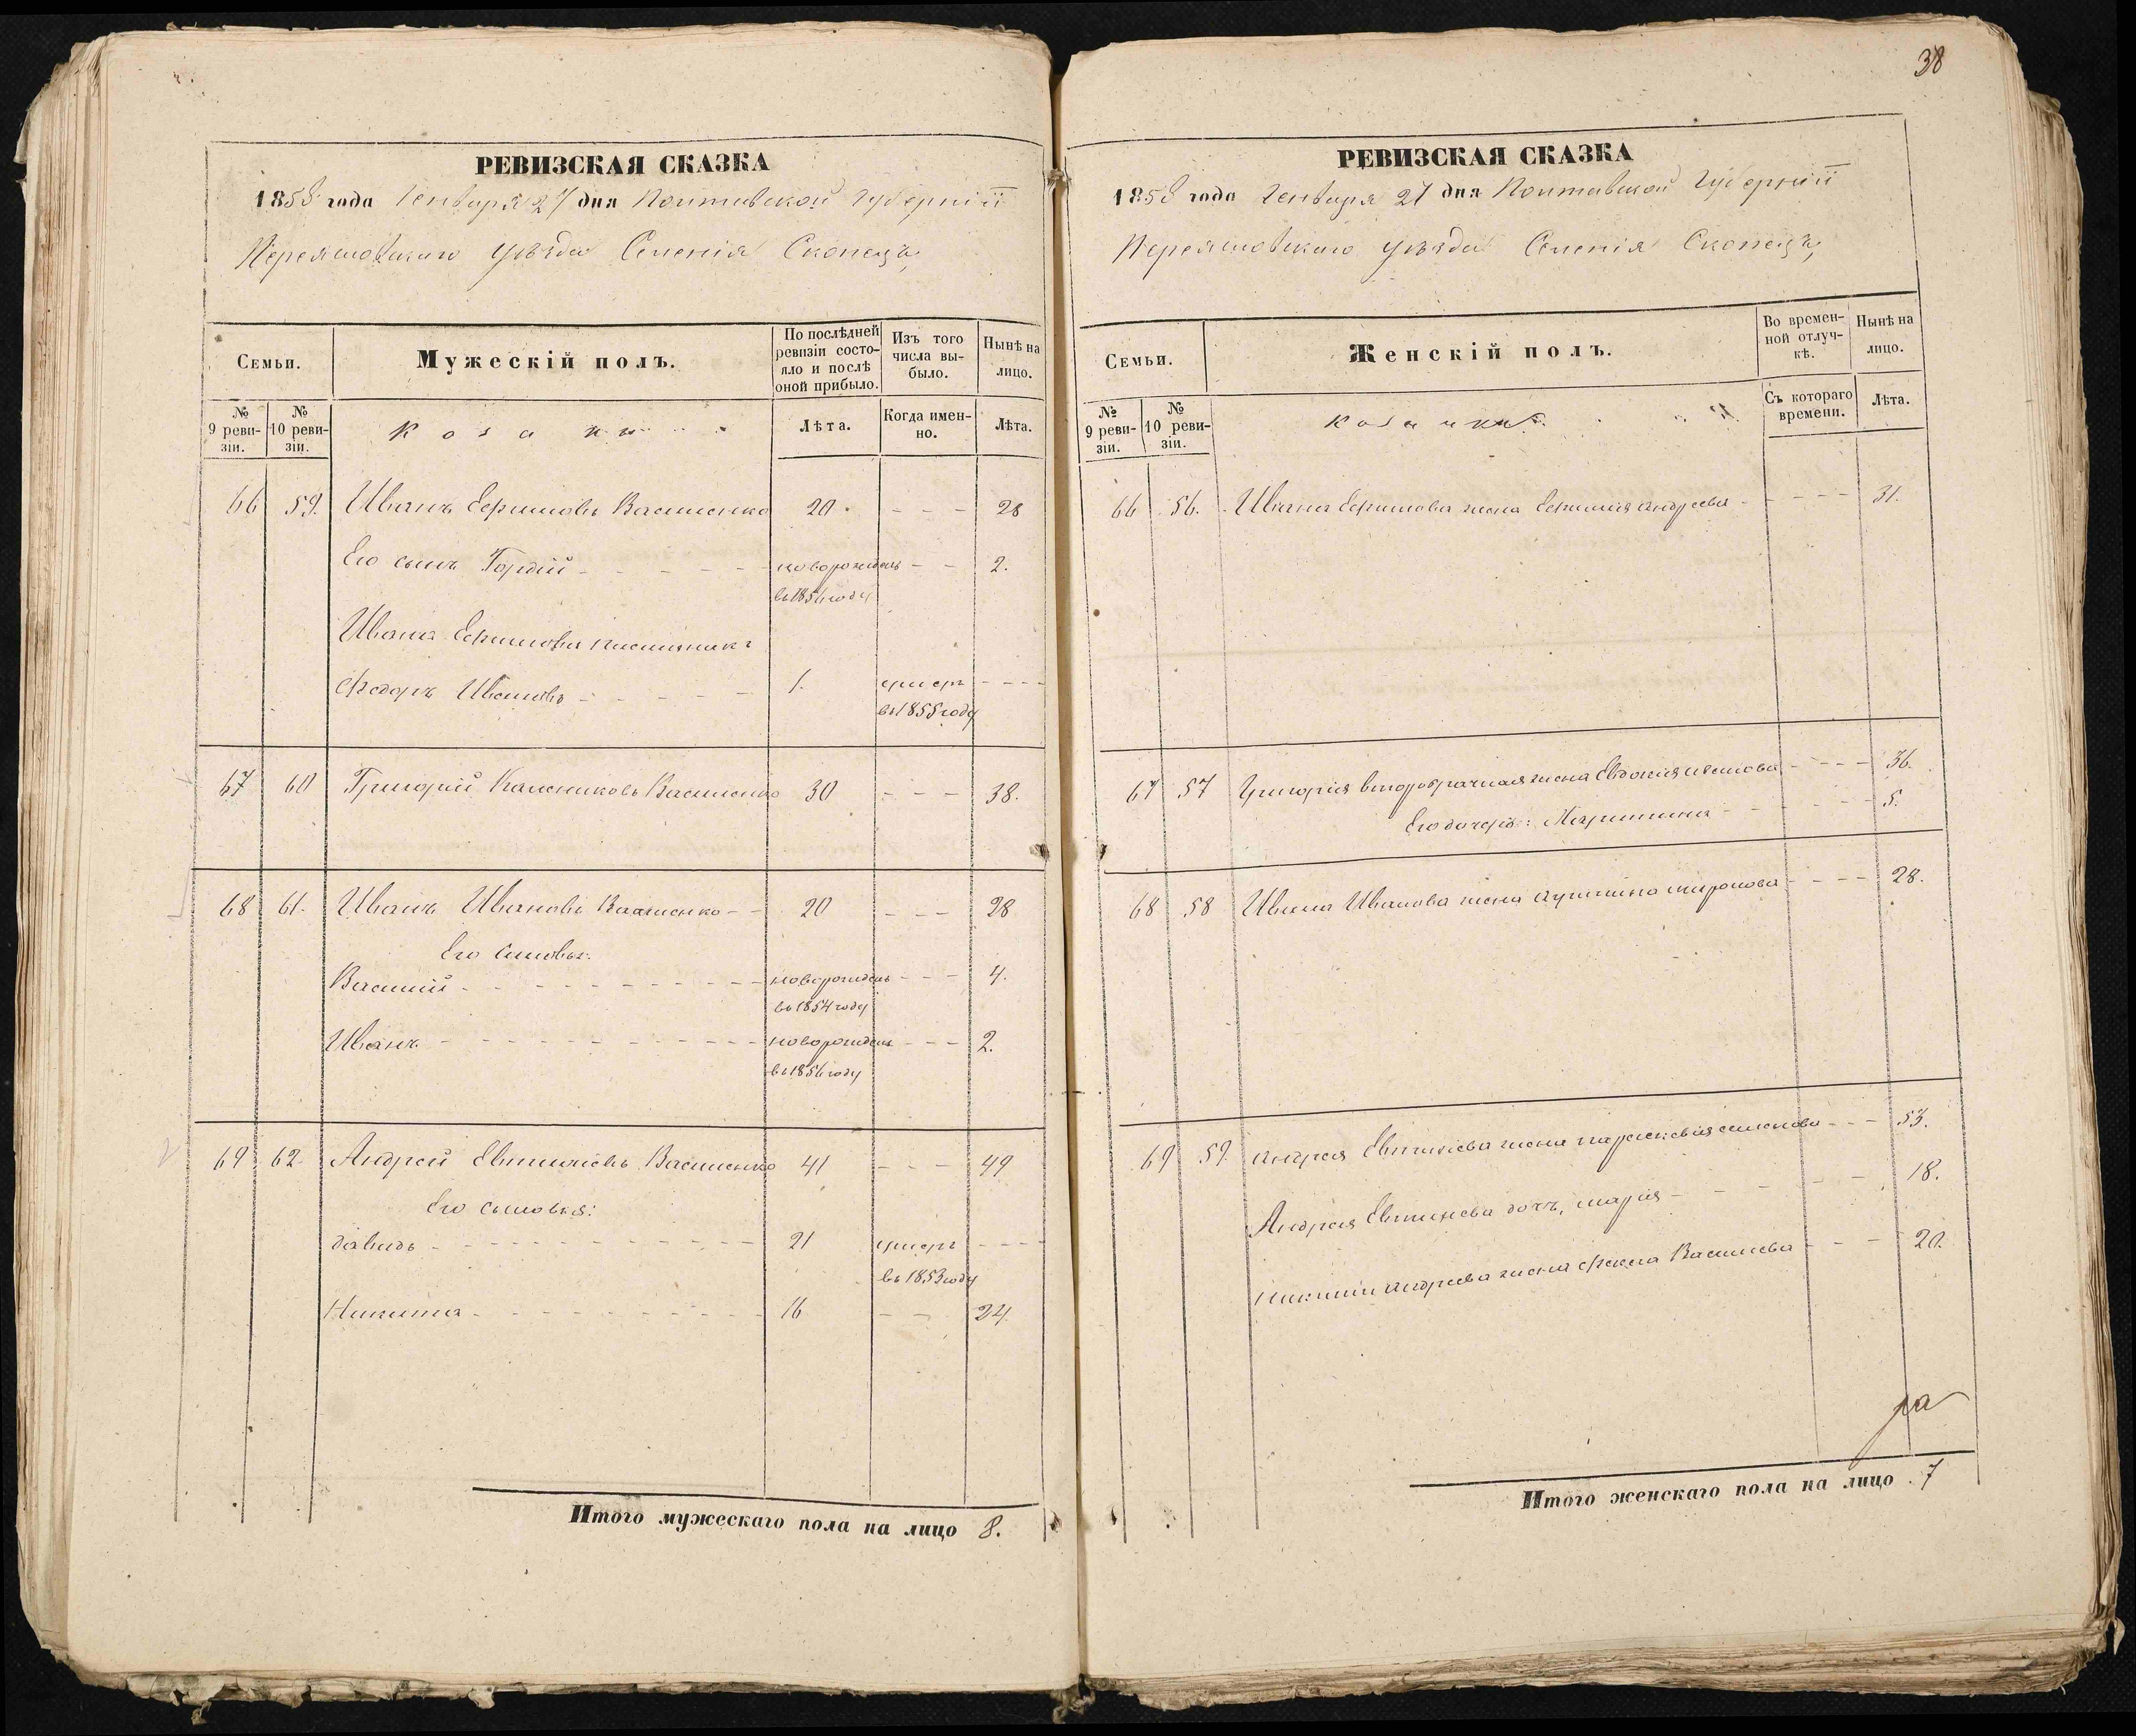 38
РЕВИЗСКАЯ СКАЗКА
1858 года Генваря 27 дня Полтавской Губерніи
Переяславскаго уѣзда Селенія Скопецъ,
Семьи.
Мужескій полъ.
По послѣдней ревизіи состояло и послѣ оной прибыло.
Изъ того числа выбыло.
Нынѣ на лицо.
№ 9 ревизіи.
№ 10 ревизіи.
Козаки
Лѣта.
Когда именно.
Лѣта.
66 59. Иванъ Ефимовъ Василенко 20 - - - 28
Его сынъ Гордій - - - новорожденъ - - 2.
въ 1856 году
Ивана Ефимова племянникъ
Федоръ Ивановъ - - - 1. умеръ - - -
въ 1855 году
67 60 Григорий Калениковъ Василенко 30 - - - 38.
68 61. Иванъ Ивановъ Василенко - - 20 - - - 28
Его сыновья:
Василий - - - новорожденъ - - - 4.
въ 1854 году
Иванъ - - - новорожденъ - - - 2.
въ 1856 году
69 62 Андрей Евтихіевъ Василенко 41 - - - 49
Его сыновья:
Давидъ - - - 21 умеръ - - -
въ 1853 году
Никита - - - 16 - - 24.
Итого мужескаго пола на лицо 8.
РЕВИЗСКАЯ СКАЗКА
1858 года Генваря 27 дня Полтавской Губерніи
Переяславскаго уѣзда Селенія Скопецъ,
Семьи.
Женскій полъ.
Во временной отлучкѣ.
Нынѣ на лицо.
№ 9 ревизіи.
№ 10 ревизіи.
Козачки
Съ котораго времени.
Лѣта.
66 56. Ивана Ефимова жена Ефимія Андреева - - - - 31.
67 57 Григорія второбрачная жена Евдокія Иванова - - - 36.
Его дочерь: - - - 5.
68 58 Ивана Иванова жена Миронова - - - 28.
69 59. Андрея Евтихіева жена Параскевія Семенова - - - 53.
Андрея Евтихіева дочь, Марія - - - 18.
Никиты Андреева жена Фекла Василіева - - - 20.
Итого женскаго пола на лицо 7